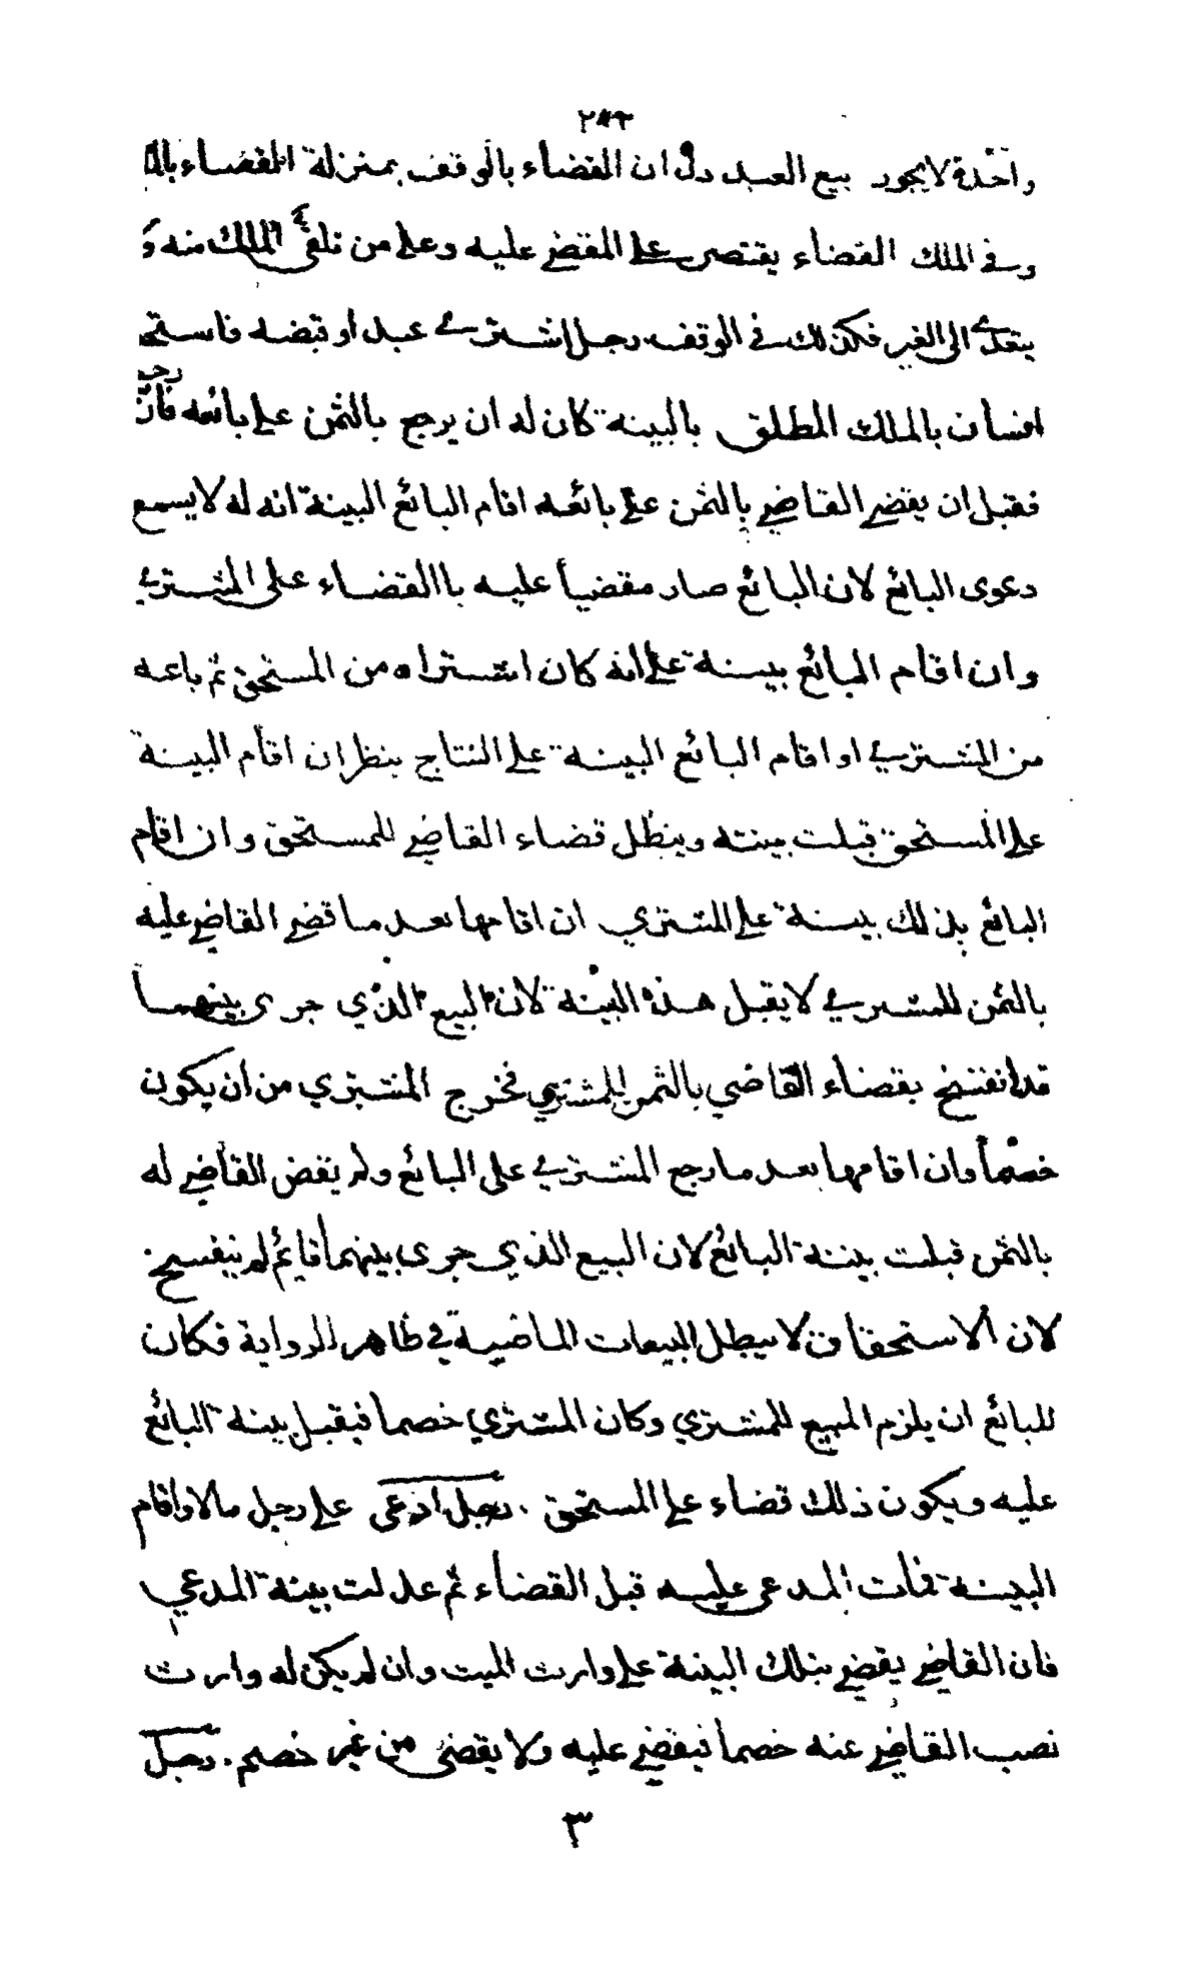 واحدة لا يجوز بيع العبد دل ان القضاء بالوقف بمنزلة القضاء بالملك
وفي الملك القضاء يقتصر على المقضي عليه وعلى من تلقى الملك منه و
يتعدى الى الغير فكذلك في الوقف رجل اشترى عبدا وقبضه فاستحقه
انسان بالملك المطلق بالبينة كان له ان يرجع بالثمن على بائعه فان رجع
فقبل ان يقضي القاضي بالثمن على بائعه اقام البائع البينة انه له لا يسمع
دعوى البائع لان البائع صار مقضياً عليه باالقضاء على المشتري
وان اقام البائع بينة على انه كان اشتراه من المستحق ثم باعه
من المشتري او اقام البائع البينة على النتاج ينظر ان اقام البينة
على المستحق قبلت بينته ويبطل قضاء القاضي للمستحق وان اقام
البائع بذلك بينة على المشتري ان اقامها بعد ما قضي القاضي عليه
بالثمن للمشتري لا يقبل هذه البينة لان البيع الذي جرى بينهما
قد انفسخ بقضاء القاضي بالثمن للمشتري فخرج المشتري من ان يكون
خصماً وان اقامها بعد ما رجع المشتري على البائع ولم يقض القاضي له
بالثمن قبلت بينة البائع لان البيع الذي جرى بينهما قائم لم ينفسخ
لان الاستحقاق لا يبطل البيعات الماضية في ظاهر الرواية فكان
للبائع ان يلزم المبيع للمشتري وكان المشتري خصما فيقبل بينة البائع
عليه ويكون ذلك قضاء على المستحق . رجل ادعى على رجل مالا واقام
البينة فمات المدعى عليه قبل القضاء ثم عدلت بينة المدعي
فان القاضي يقضي بتلك البينة على وارث الميت وان لم يكن له وارث
نصب القاضي عنه خصما فيقضي عليه ولا يقضى من غير خصم . رجل
٣